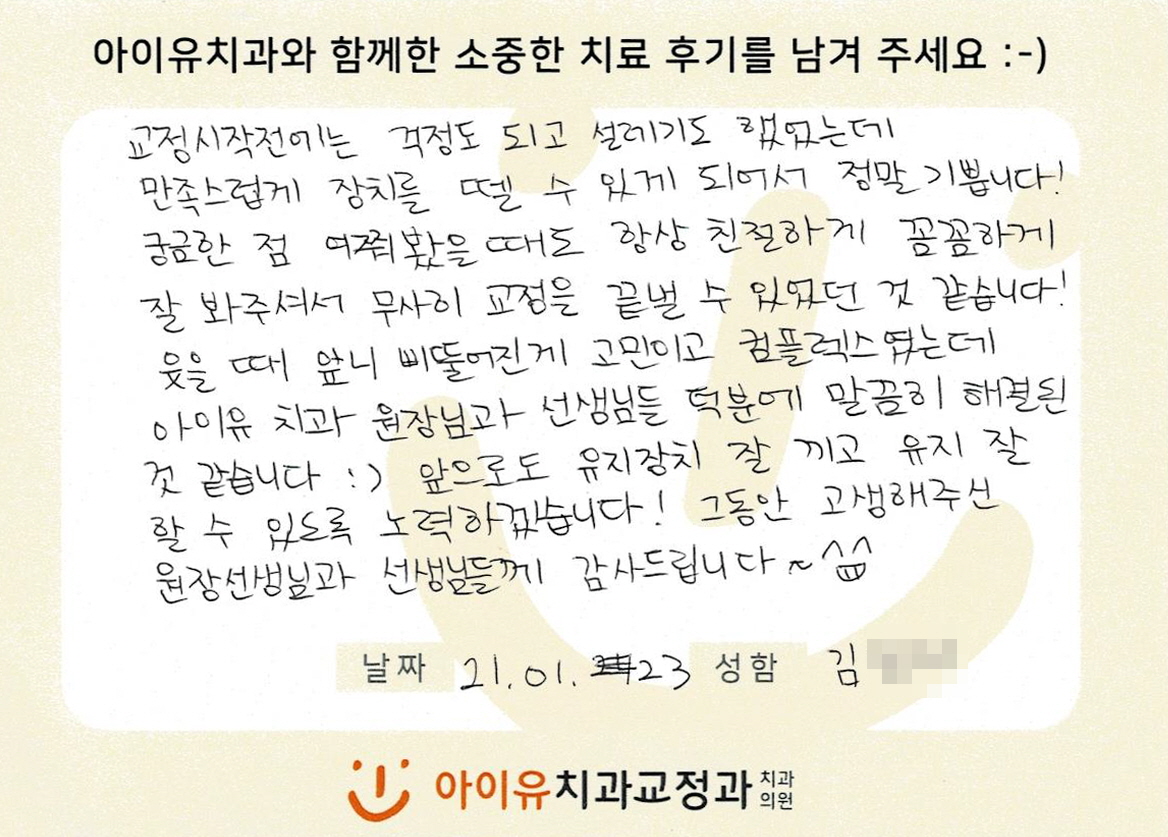 아이유치과와 함께한 소중한 치료 후기를 남겨 주세요 :-)
교정시작전에는 걱정도 되고 설레기도 했었는데
만족스럽게 장치를 뗄 수 있게 되어서 정말 기쁩니다!
궁금한 점 여쭤봤을때도 항상 친절하게 꼼꼼하게
잘 봐주셔서 무사히 교정을 끝낼 수 있었던 것 같습니다!
웃을 때 앞니 삐뚤어진게 고민이고 컴플렉스였는데
아이유 치과 원장님과 선생님들 덕분에 말끔히 해결된
것 같습니다 :) 앞으로도 유지장치 잘 끼고 유지 잘
할 수 있도록 노력하겠습니다! 그동안 고생해주신
원장선생님과 선생님들께 감사드립니다~ ^^
날짜 21.01.23 성함 김
아이유치과교정과 치과의원